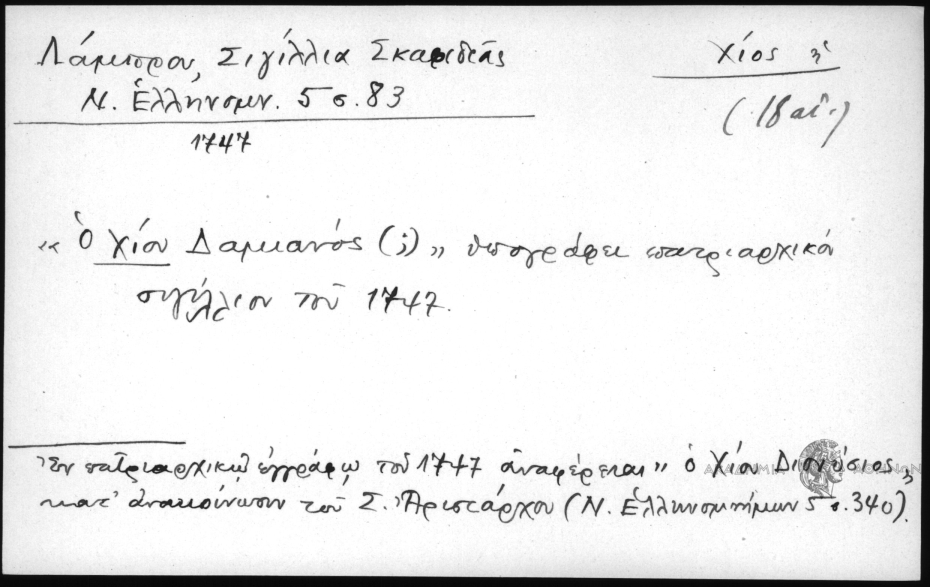 Λάμπρου, Σιγίλλια Σκαριδεᾶς
Ν. Ἑλληνομν. 5 σ. 83
1747
Χίος ἡ
(18 αἰ.)
« Ὁ Χίου Δαμιανός (;) » ὑπογράφει πατριαρχικόν
σιγίλλιον τοῦ 1747.
Ἐν πατριαρχικῷ ἐγγράφῳ τοῦ 1747 ἀναφέρεται " ὁ Χίου Διονύσιος,
κατ' ἀνακοίνωσιν τοῦ Σ. Ἀριστάρχου (Ν. Ἑλληνομνήμων 5 σ. 340).
ΑΚΑΔΗΜΙΑ ΑΘΗΝΩΝ